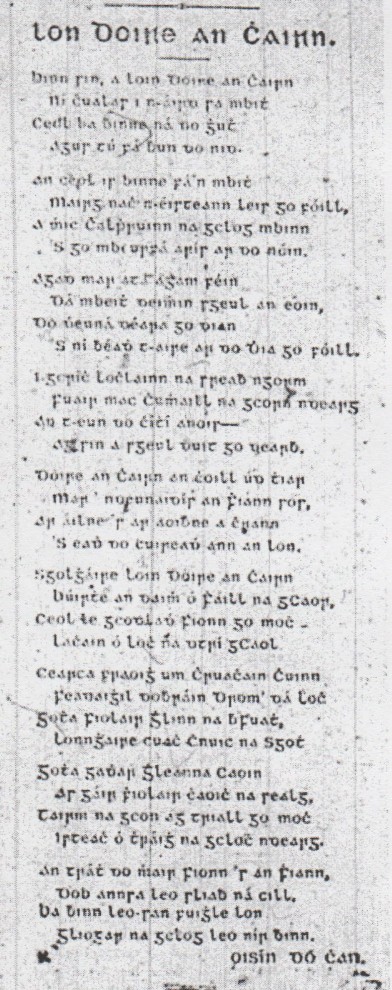 Lon Doire an Ċairn.
Binn sin, a loin Doire an Ċairn
Ní ċualas i n-áird sa mbiṫ
Ceol ba binne ná do ġuṫ
Agus tú fá bun do nid.
An ceol is binne fá'n mbiṫ
Mairg naċ n-éisteann leis go fóill,
A ṁic Ċalpruinn na gclog mbinn
'S go mbeurṫá arís ar do nóin.
Agad mar atá agam féin
Dá mbeiṫ deiṁin sgeul an eoin,
Do ḋeuntá déara go dian
'S ní béaḋ t-aire ar do Ḋia go fóill.
I gcríċ Loċlainn na sreaḃ ngorm
Fuair mac Cuṁaill na gcorn ndearg
An t-eun do ċítí anois—
Ag sin a sgeul duit go dearḃ.
Doire an Ċairn an ċoill úd ṫiar
Mar a ndeunaidís an Ḟiann fos,
Ar áilne 's ar aoiḃne a ċrann
'S eaḋ do cuireaḋ ann an lon.
Sgolġáire loin Doire an Ċairn
Búirṫe an daiṁ ó Ḟáill na gCaor,
Ceol le gcodlaḋ Fionn go moċ
Laċain ó Loċ na dTrí gCaol
Cearca fraoiġ um Ċruaċain Ċuinn
Feadaiġil dobráin Drom' dá Loċ
Goṫa fiolair Ġlinn na bFuaṫ,
Lonnġaire cuaċ Ċnuic na Sgoṫ
Goṫa gaḋar Ġleanna Caoin
Ar gáir ḟiolair ċaoiċ na sealg,
Tairm na gcon ag triall go moċ
Isteaċ ó ṫráiġ na gcloċ ndearg.
An tráṫ do ṁair Fionn 's an Ḟiann,
Dob annsa leo sliaḃ ná cill.
Ba binn leo-san fuiġle lon
Gliogar na gclog leo nír ḃinn.
Oisín do ċan.